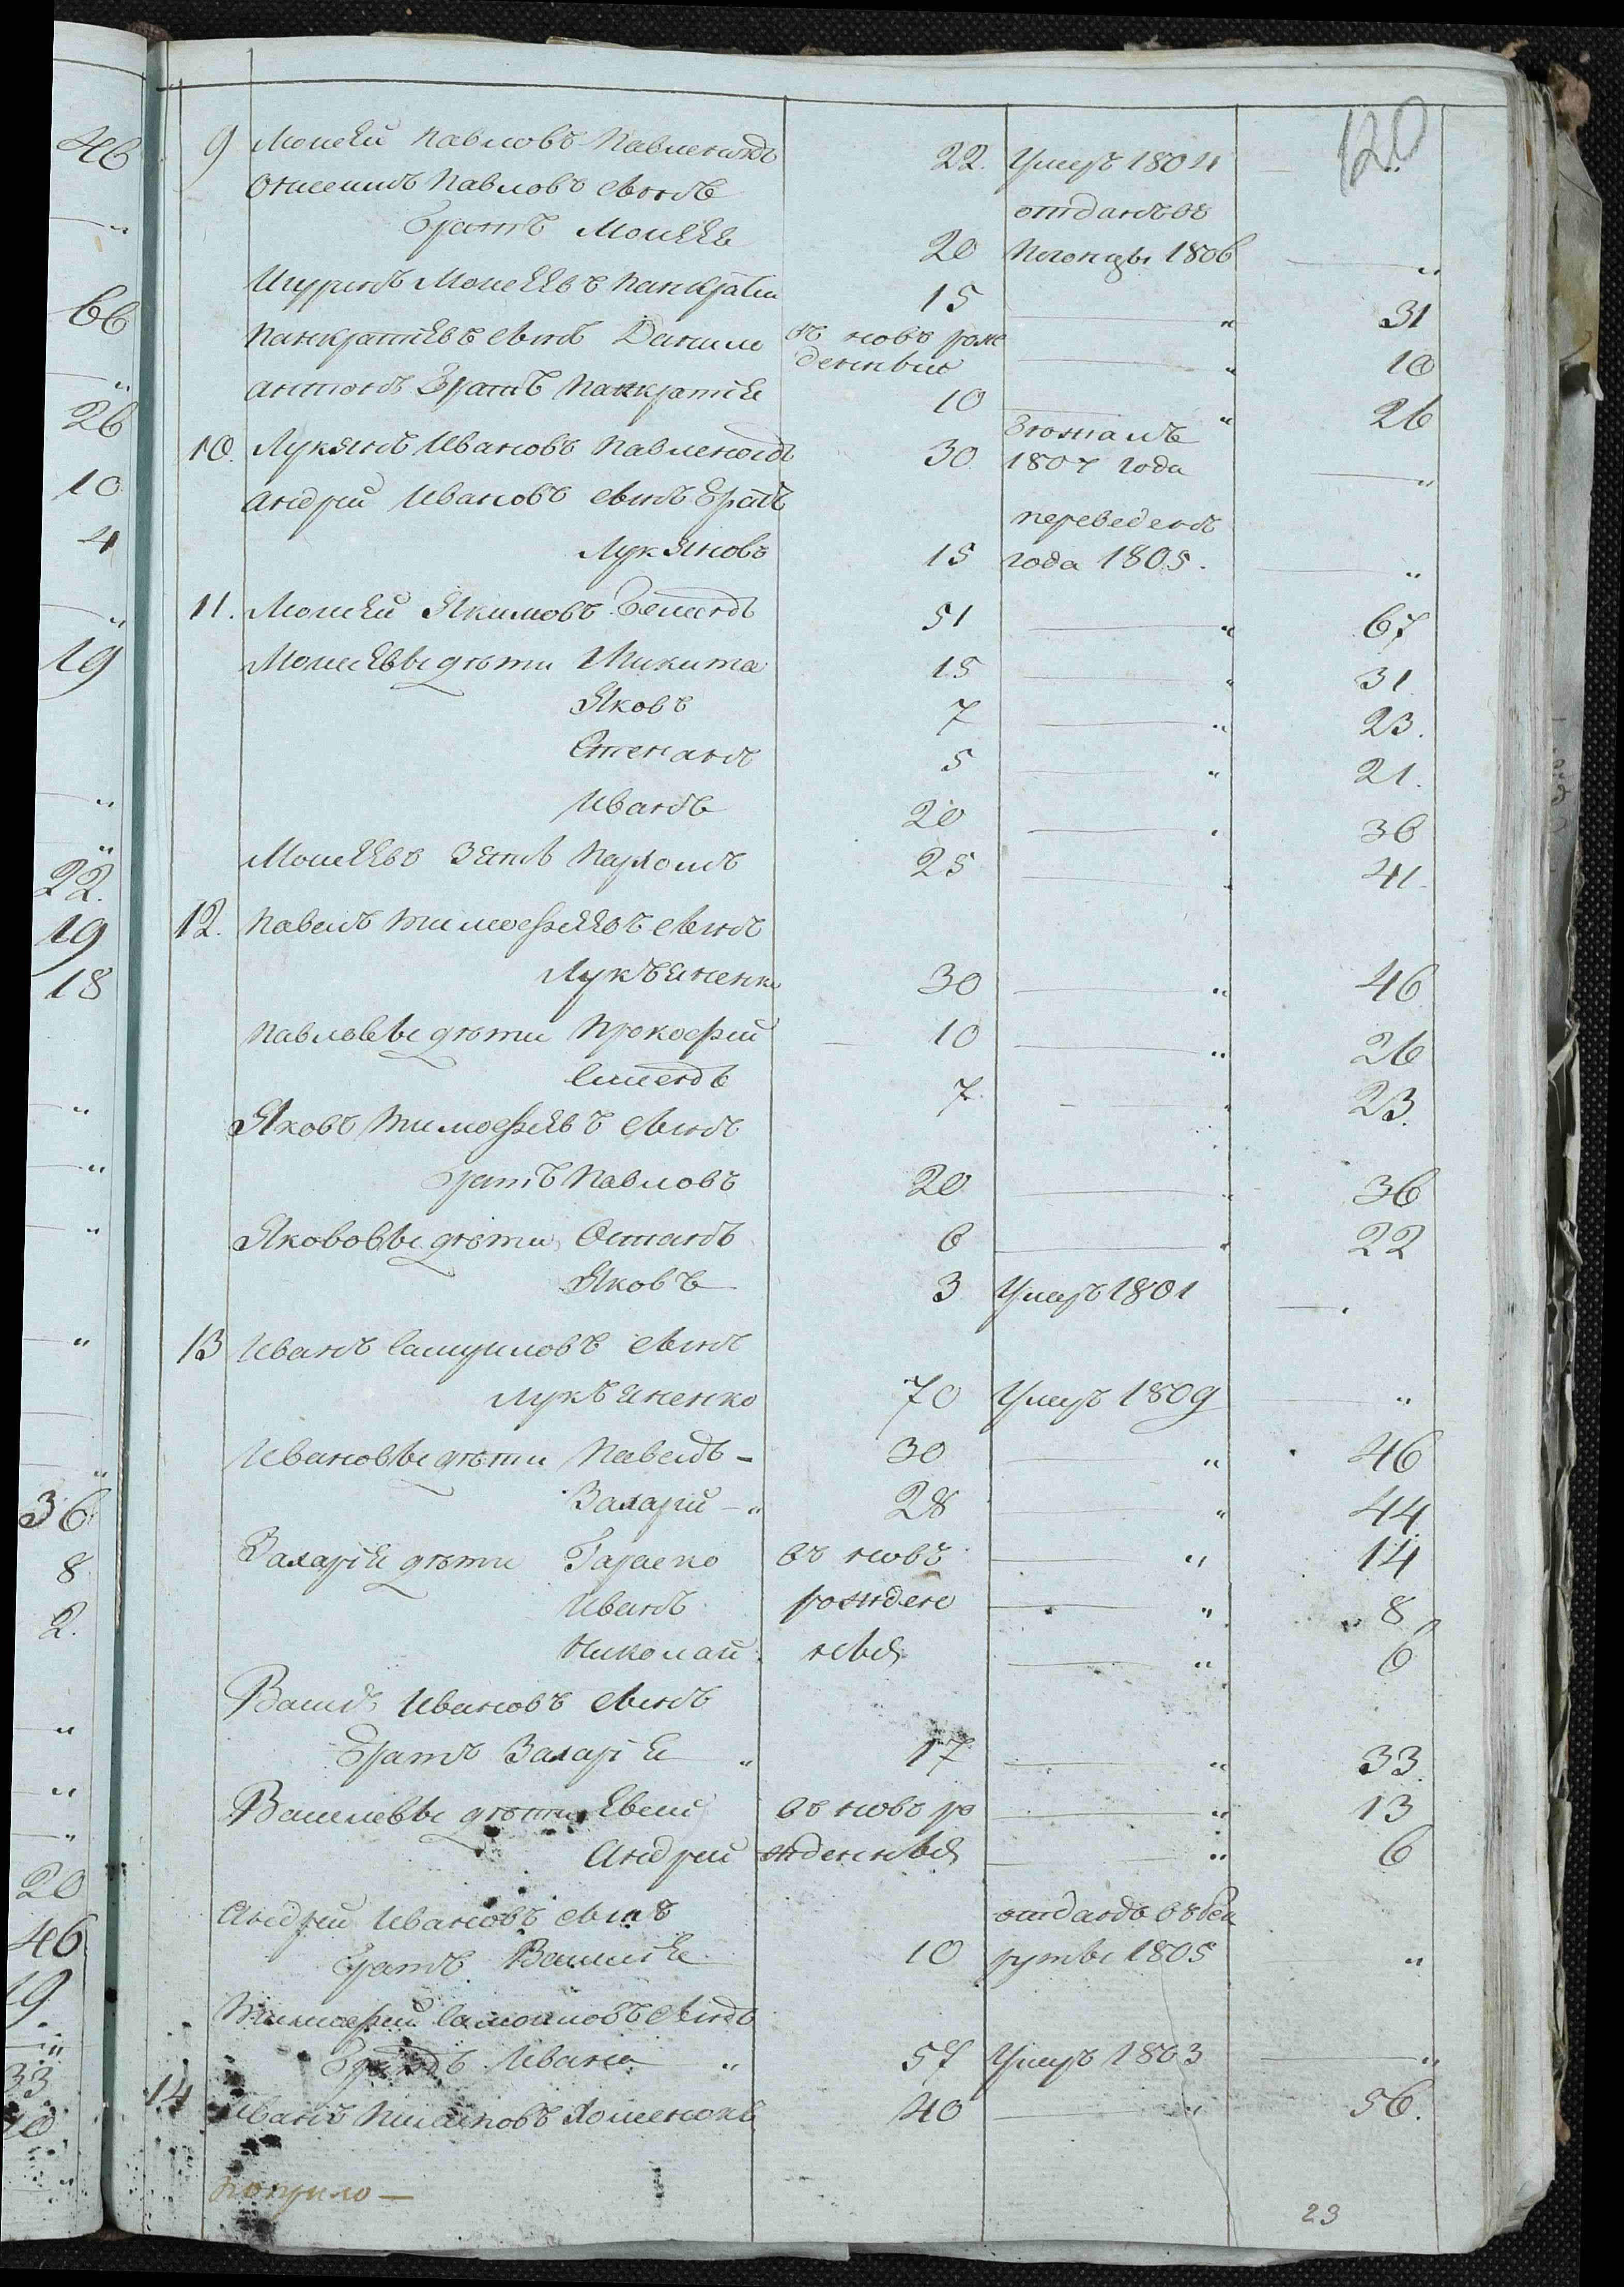 120
9 Моисей Павловъ Павленокъ 22. Умеръ 1804
Онисимъ Павловъ сынъ отданъ въ
братъ Моисеевъ 20 погонцы 1806 "
Шуринъ Моисеевъ Панкратъ 15 " 31
Панкратіевъ сынъ Данило въ новъ рож
денный " 10
Антонъ братъ Панкратіе 10 " 26
10. Лукянъ Ивановъ Павленокъ 30 бѣжалъ 1807 года "
Андрей Ивановъ сынъ братъ переведенъ
Лукяновъ 15 года 1805. "
11. Моисей Якимовъ 51 " 67
Моисеевы дѣти Микита 15 " 31
Яковъ 7 " 23.
Степанъ 5 " 21.
Иванъ 20 " 36
Моисеевъ зять Пархомъ 25 " 41.
12. Павелъ Тимофеевъ сынъ
Лукъяненко 30 " 46
Павловы дѣти Прокофий 10 " 26
Семенъ 7. " 23.
Яковъ Тимофеевъ сынъ
братъ Павловъ 20 " 36
Якововы дѣти Остапъ 6 " 22
Яковъ 3 Умеръ 1801
13 Иванъ Самуиловъ сынъ
Лукъяненко 70 Умеръ 1809 "
Ивановы дѣти Павелъ - 30 " 46
Захарий - " 28 " 44
Захаріе дѣти Тараско въ новъ " 14
Иванъ рожден " 8
Николай ныя " 6
Василь Ивановъ сынъ
братъ Захаріе " 17 " 33.
Василевы дѣти Евсей въ новъ ро " 13
Андрей жденныя " 6
Андрей Ивановъ сынъ отданъ в рек
братъ Василіе 10 руты 1805 "
Тимофей Самоиловъ сынъ
братъ Ивана " 57 Умеръ 1803 "
14 Иванъ Хоменокъ 40 " 56.
23
46
"
66
"
26
10
4
"
19
"
"
22.
19
18
"
"
"
"
"
36
8
2.
"
"
"
20
46
19.
"
33
10
"